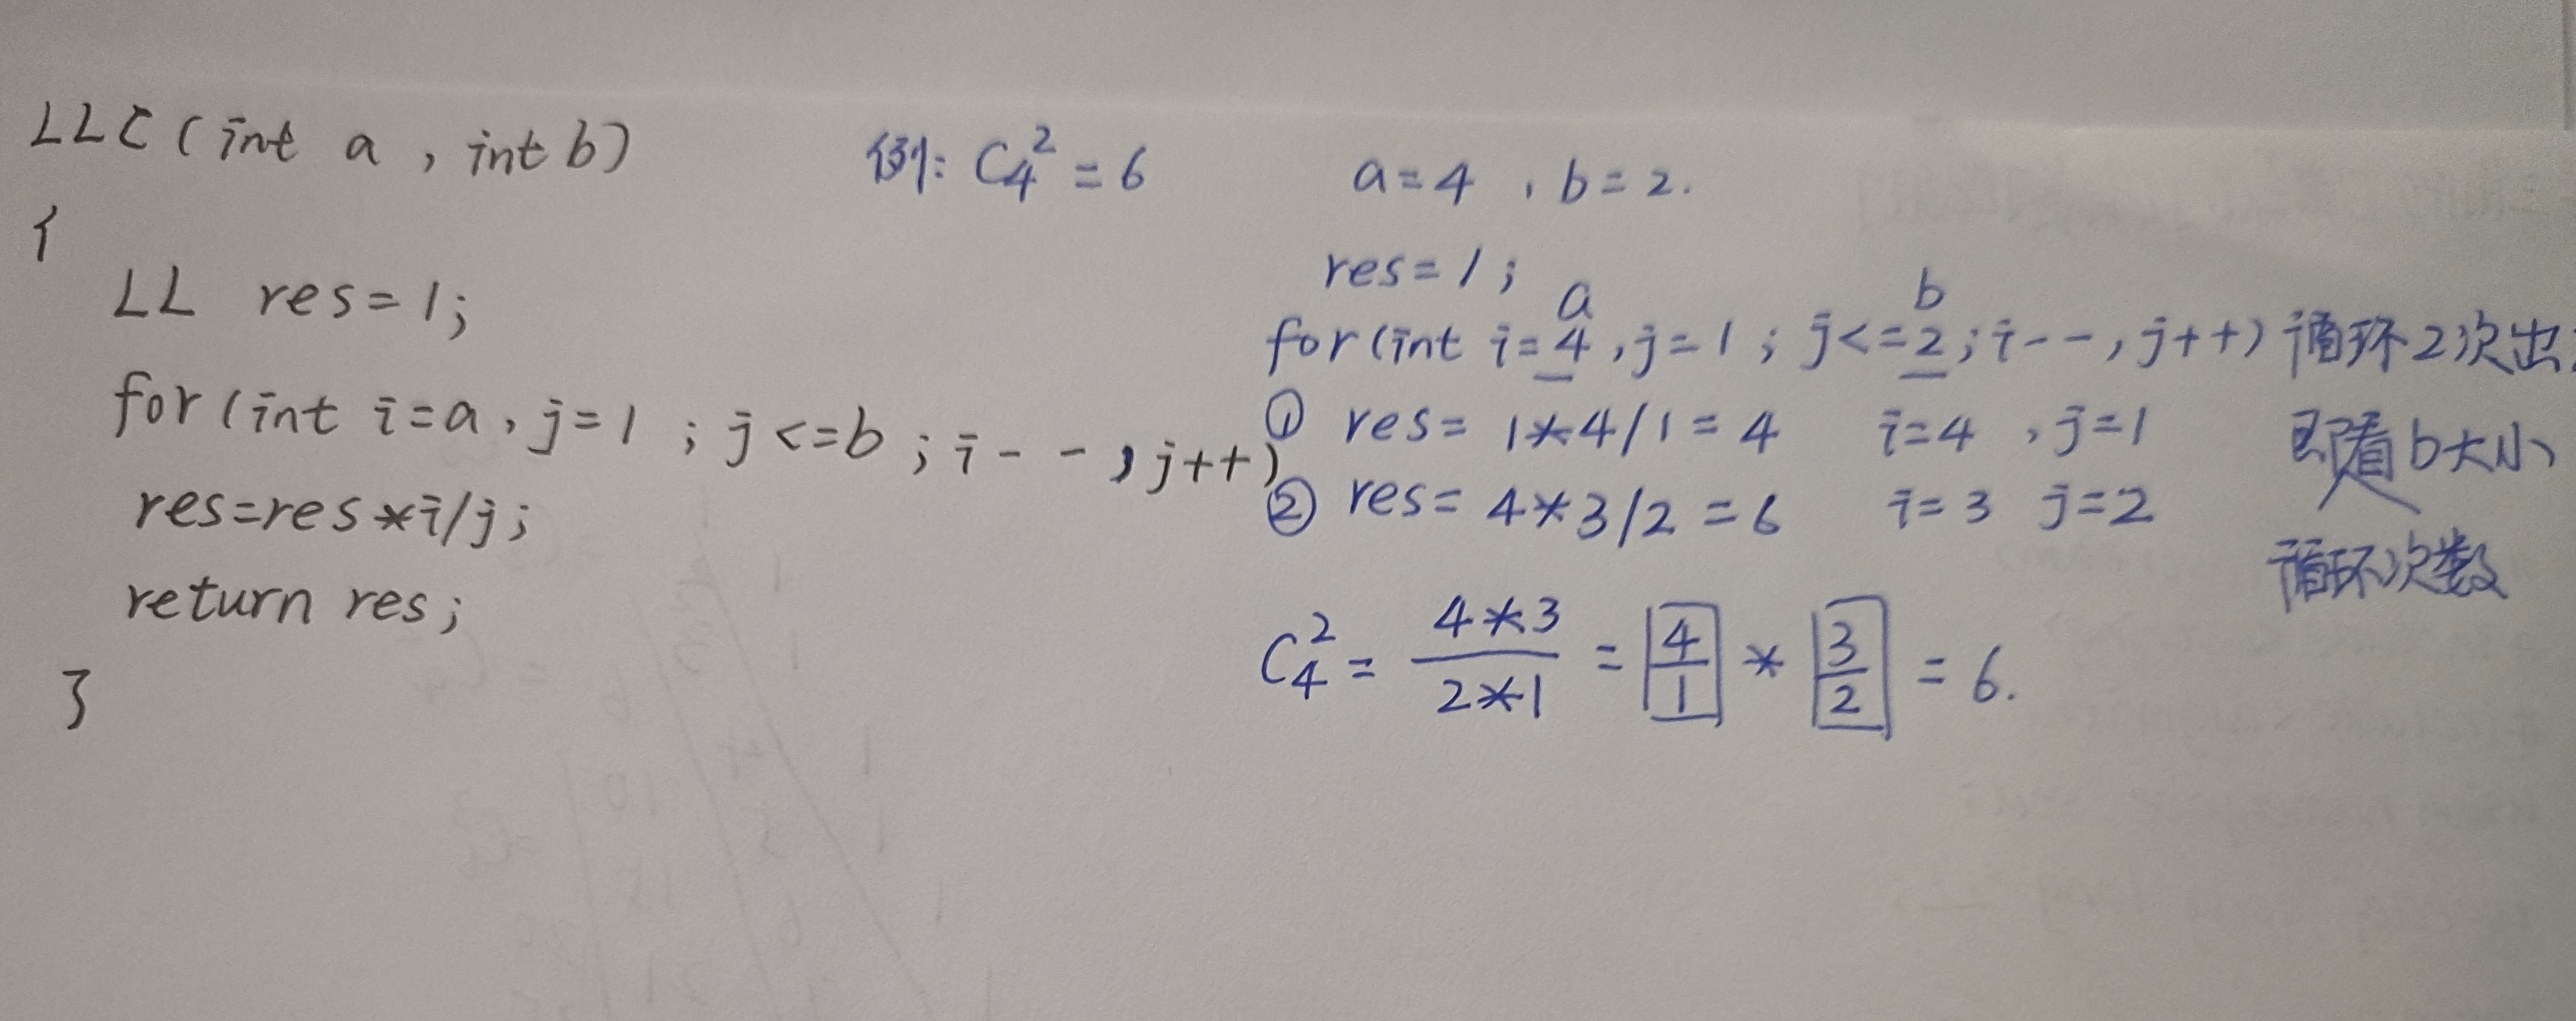 LLC(int a, int b)
{
LL res=1;
for(int i=a,j=1;j<=b;i--,j++)
res=res*i/j;
return res;
}
例: C₄²=6 a=4, b=2.
res=1;
a b
for(int i=4,j=1;j<=2;i--,j++) 循环2次出
① res= 1*4/1=4 i=4,j=1 即看b大小
② res= 4*3/2=6 i=3 j=2
循环次数
C₄²= 4*3/2*1 = 4/1 * 3/2 = 6.